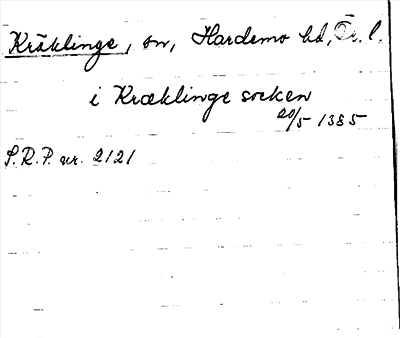 Kräklinge, sn, Hardemo hd, Ör. l.
i Kræklinge socken
20/5 1385
S.R.P. nr. 2121